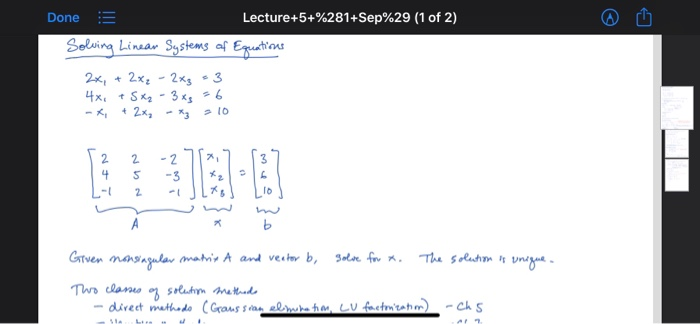 Done
Lecture+5+%281+Sep%29 (1 of 2)
Solving Linear Systems of Equations
2x₁ + 2x₂ - 2x₃ = 3
4x₁ + 5x₂ - 3x₃ = 6
-x₁ + 2x₂ - x₃ = 10
[2 2 -2] [x₁] [3]
[4 5 -3] [x₂] = [6]
[-1 2 -1] [x₃] [10]
A x b
Given nonsingular matrix A and vector b, solve for x. The solution is unique.
Two classes of solution methods
- direct methods (Gaussian elimination, LU factorization) - Ch 5